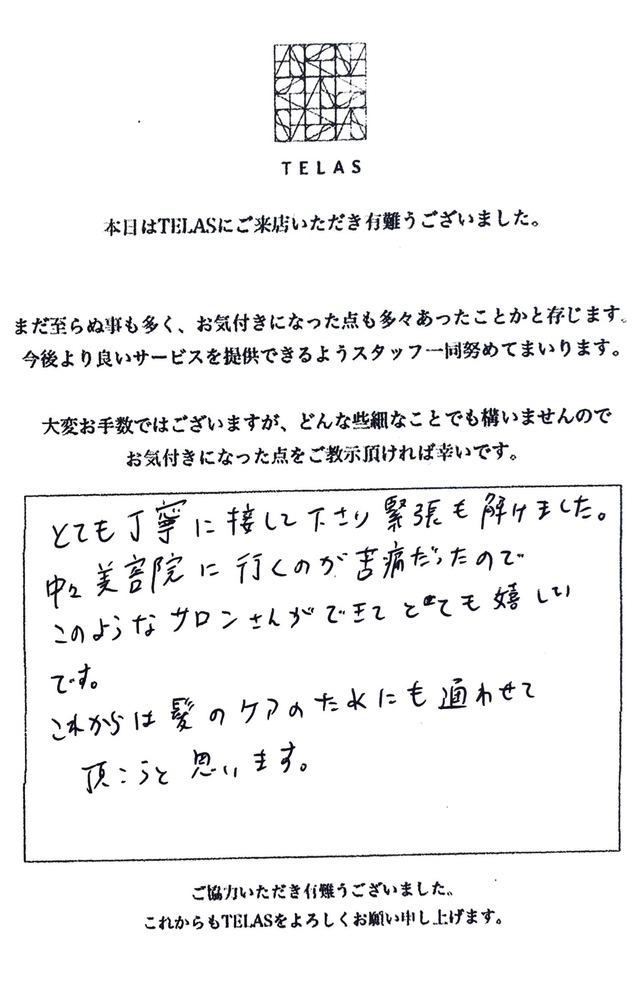 TELAS
本日はTELASにご来店いただき有難うございました。
まだ至らぬ事も多く、お気付きになった点も多々あったことかと存じます。
今後より良いサービスを提供できるようスタッフ一同努めてまいります。
大変お手数ではございますが、どんな些細なことでも構いませんので
お気付きになった点をご教示頂ければ幸いです。
とても丁寧に接して下さり緊張も解けました。
中々美容院に行くのが苦痛だったので
このようなサロンさんができてとても嬉しい
です。
これからは髪のケアのためにも通わせて
頂こうと思います。
ご協力いただき有難うございました。
これからもTELASをよろしくお願い申し上げます。